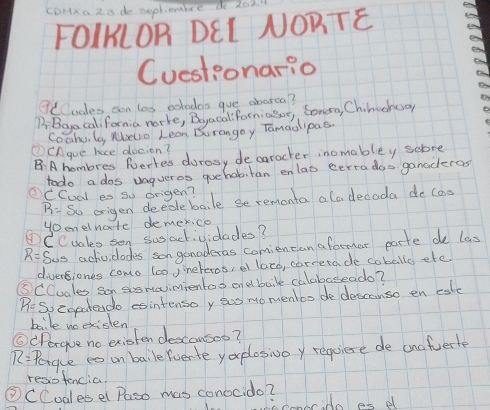 CDMX a 20 de septiembre de 2024
FOlKLOR DEL NORTE
Cuestionario
① ¿Cuales son los estados que abarca?
R= Baja california norte, Bajacaliforniasur, Sonora, Chihuahua,
Coahuila, Nuevo Leon Durango y Tamaulipas.
② ¿A que hace alucien?
R= A hombres fuertes duros y de caracter inomable y sobre
todo a dos vaqueros que habitan en las cerrados ganaderas
③ ¿Cual es su origen?
R= Su origen de este baile se remonta a la decada de los
40 en el norte de mexico.
④ ¿Cuales son sus actividades?
R= Sus actividades son ganaderas comienzan a formar parte de las
diversiones como los jineteros, el lazo, carrera de caballo etc
⑤ ¿Cuales son sus movimientos en el baile calabaseado?
R= Su zapateado es intenso y sus momentos de descanso en este
baile no existen
⑥ ¿Porque no existen descansos?
R= Porque es un baile fuerte y explosivo y requiere de una fuerte
resistencia.
⑦ ¿Cual es el Paso mas conocido?
conocido es el